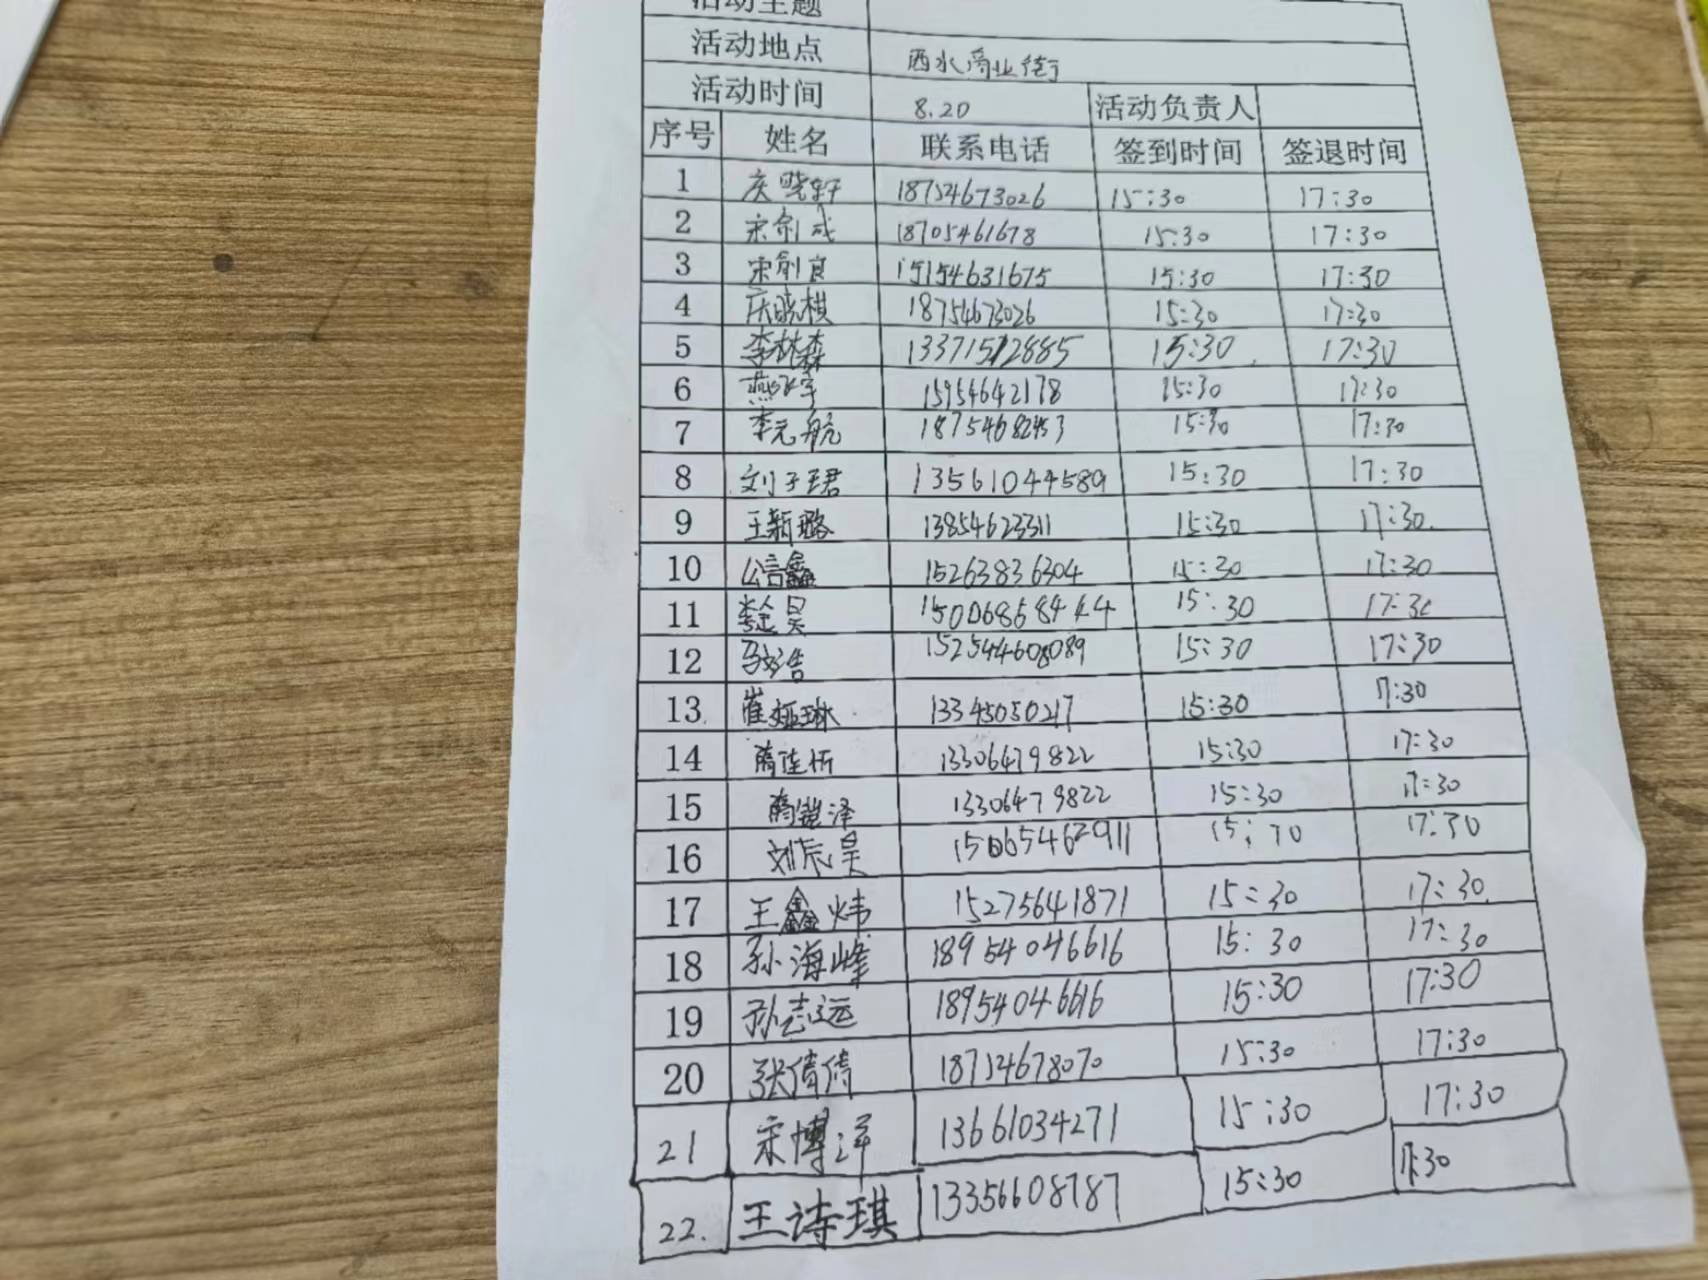 活动主题
活动地点 西水商业街
活动时间 8.20 活动负责人
序号 姓名 联系电话 签到时间 签退时间
1 庆晓轩 18754673026 15:30 17:30
2 宋剑成 18705461678 15:30 17:30
3 宋剑宜 15154631675 15:30 17:30
4 庆晓棋 18754673026 15:30 17:30
5 李林森 13371512885 15:30 17:30
6 15954642178 15:30 17:30
7 李元航 18754682453 15:30 17:30
8 刘子珺 13561044589 15:30 17:30
9 王新璐 13854623311 15:30 17:30
10 公言鑫 15263836304 15:30 17:30
11 15:30 17:30
12 15:30 17:30
13 崔娅琳 13345050217 15:30 17:30
14 13306479822 15:30 17:30
15 13306479822 15:30 17:30
16 刘辰昊 15:30 17:30
17 王鑫炜 15275641871 15:30 17:30
18 孙海峰 18954046616 15:30 17:30
19 孙志远 18954046616 15:30 17:30
20 张倩倩 18754678070 15:30 17:30
21 宋博洋 13661034271 15:30 17:30
22. 王诗琪 13356608787 15:30 17:30